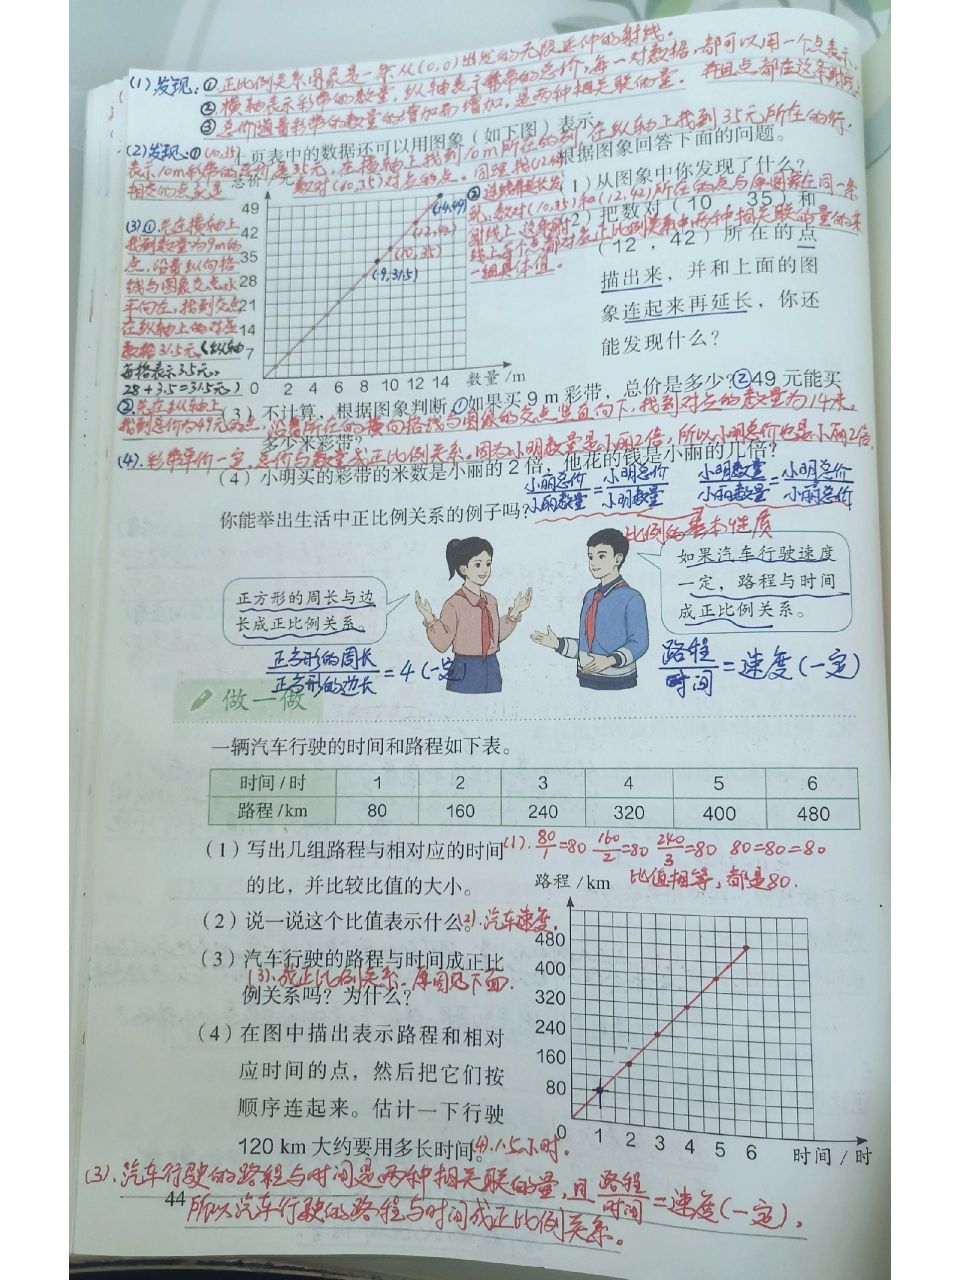 (1)发现:①正比例关系图象是一条从(0,0)出发的无限延伸的射线。
②横轴表示彩带的数量,纵轴表示彩带的总价,每一对数据,都可以用一个点表示,并且点都在这条射线上
③总价随着彩带的数量的增加而增加,是两种相关联的量.
(2)发现:①(10,35)
表示10m彩带的总价是35元,在横轴上找到10m所在的列,在纵轴上找到35元所在的行,
相交的点就是数对(10,35)对应的点。同理找(12,42)
上页表中的数据还可以用图象(如下图)表示,
根据图象回答下面的问题。
②连线再延长发
现,数对(10,35)和(12,42)所在的点与原图象在同一条
射线上,这条射
线上每个点都对应正比例关系中两种相关联的量的某
一组具体值。
(1)从图象中你发现了什么?
(2)把数对(10,35)和
(12,42)所在的点
描出来,并和上面的图
象连起来再延长,你还
能发现什么?
总价/元
49
42
35
28
21
14
7
0 2 4 6 8 10 12 14 数量/m
(14,49)
(12,42)
(10,35)
(9,31.5)
(3)①.先在横轴上
找到数量为9m的
点,沿着纵向格
线与图象交点水
平向左,找到交点
在纵轴上的对应
数据31.5元(纵轴
每格表示3.5元,
28+3.5=31.5元)
②.先在纵轴上
找到总价为49元的点,沿着所在的横向格线与图象的交点竖直向下,找到对应的数量为14米。
(3)不计算,根据图象判断,①如果买9 m彩带,总价是多少?②49元能买
多少米彩带?
(4).彩带单价一定,总价与数量成正比例关系。因为小明数量是小丽2倍,所以小明总价也是小丽2倍.
(4)小明买的彩带的米数是小丽的2倍,他花的钱是小丽的几倍?
小丽总价/小丽数量=小明总价/小明数量 小明数量/小丽数量=小明总价/小丽总价
比例的基本性质
你能举出生活中正比例关系的例子吗?
正方形的周长与边
长成正比例关系。
如果汽车行驶速度
一定,路程与时间
成正比例关系。
正方形的周长/正方形的边长=4(一定)
路程/时间=速度(一定)
做一做
一辆汽车行驶的时间和路程如下表。
时间/时 1 2 3 4 5 6
路程/km 80 160 240 320 400 480
(1)写出几组路程与相对应的时间
的比,并比较比值的大小。
(1).80/1=80 160/2=80 240/3=80 80=80=80
比值相等,都是80.
(2)说一说这个比值表示什么。
(2).汽车速度.
(3)汽车行驶的路程与时间成正比
例关系吗?为什么?
(3).成正比例关系.原因见下面.
(4)在图中描出表示路程和相对
应时间的点,然后把它们按
顺序连起来。估计一下行驶
120 km大约要用多长时间。
(4).1.5小时.
路程/km
480
400
320
240
160
80
0 1 2 3 4 5 6 时间/时
(3).汽车行驶的路程与时间是两种相关联的量,且路程/时间=速度(一定),
所以汽车行驶的路程与时间成正比例关系。
44